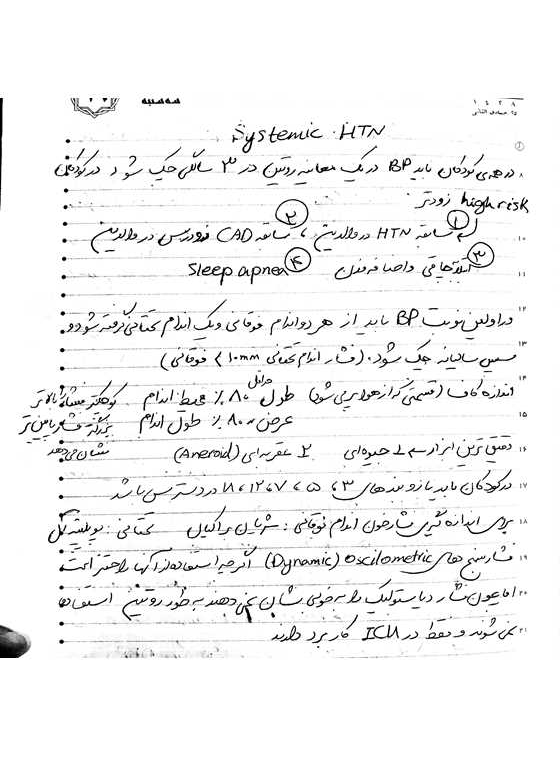 سه‌شنبه
۱۴۲۸
۲۵ جمادی الثانی
Systemic HTN
در همه‌ی کودکان باید BP در یک معاینه روتین در ۳ سالگی چک شود در کودکان
high risk زودتر
① سابقه HTN در والدین، ② سابقه CAD زودرس در والدین
③ چاقی و اضافه وزن ④ Sleep apnea
در اولین نوبت BP باید از هر دو اندام فوقانی و یک اندام تحتانی گرفته شود و
سپس سالیانه چک شود. (فشار اندام تحتانی 10mm > فوقانی)
اندازه کاف (قسمتی که از هوا پر می شود) طول حداقل ۸۰٪ محیط اندام کوچکتر فشار بالاتر
عرض ۴۰٪ طول اندام بزرگتر فشار پایین‌تر
نشان می دهد
دقیق ترین ابزار ← ۱ جیوه‌ای ۲ عقربه‌ای (Aneroid)
در کودکان باید بازوبندهای ۳، ۵، ۷، ۱۲، ۱۸ در دسترس باشد
برای اندازه گیری فشارخون اندام فوقانی: شریان براکیال تحتانی: پوپلیته‌آل
فشارسنج های oscilometric (Dynamic) اگرچه استفاده از آنها راحتتر است
اما چون فشار دیاستولیک را به خوبی نشان نمی دهند به طور روتین استفاده
نمی شوند و فقط در ICU کاربرد دارند